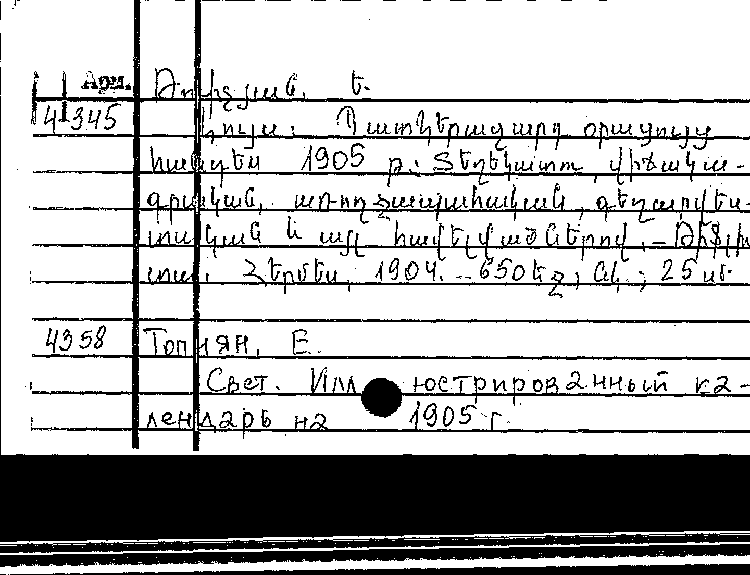 Арм. Թոփչյան, Ե.
4345 Լույս: Պատկերազարդ օրացույց
համար 1905 թ.: Տեղեկատու, վիճակա-
գրական, առողջապահական, գեղարվես-
տական և այլ հավելվածներով. – Թիֆլիս
տպ. Հերմես, 1904. – 650 էջ; նկ.; 25 սմ.
4358 Топчян, Е.
Свет. Иллюстрированный ка-
лендарь на 1905 г.